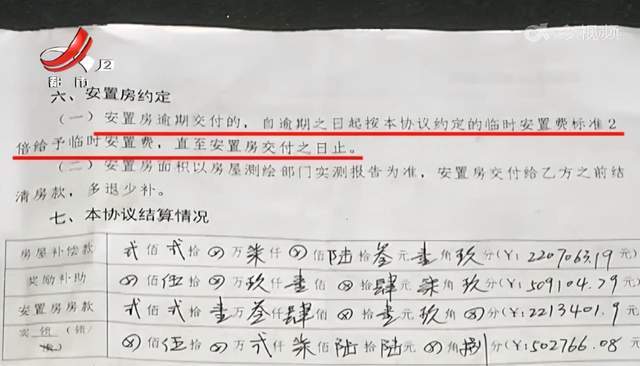 都市2
视频
六、安置房约定
（一）安置房逾期交付的，自逾期之日起按本协议约定的临时安置费标准2
倍给予临时安置费，直至安置房交付之日止。
（二）安置房面积以房屋测绘部门实测报告为准，安置房交付给乙方之前结
清房款，多退少补。
七、本协议结算情况
房屋补偿款 弍佰弍拾⊗万柒仟⊗佰陆拾叁元壹角玖分(¥: 2207063.19 元)
奖励补助 ⊗佰伍拾⊗万玖仟壹佰⊗拾肆元柒角玖分(¥: 509104.79 元)
安置房房款 弍佰弍拾壹万叁仟肆佰⊗拾壹元玖角⊗分(¥: 2213401.9 元)
实领（领/ ⊗佰伍拾⊗万弍仟柒佰陆拾陆元⊗角捌分(¥: 502766.08 元)